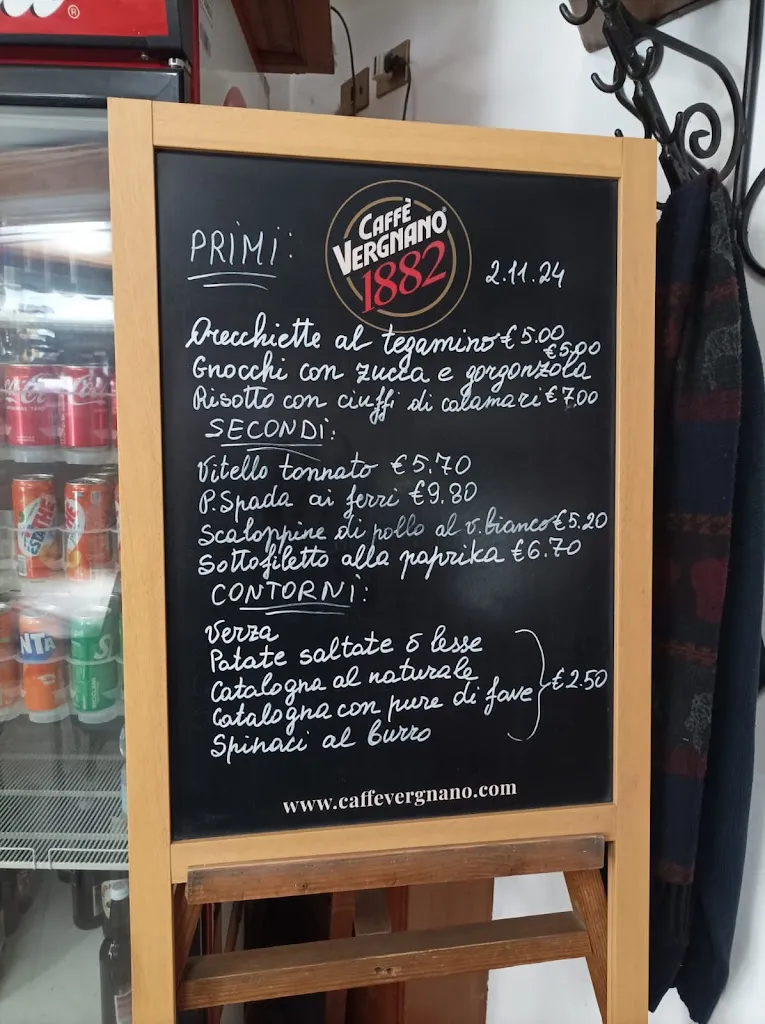 PRIMI:
CAFFÈ
VERGNANO
1882
2.11.24
Orecchiette al tegamino €5.00
Gnocchi con zucca e gorgonzola €5,00
Risotto con ciuffi di calamari €7,00
SECONDI:
Vitello tonnato €5.70
P.Spada ai ferri €9.80
Scaloppine di pollo al v.bianco €5.20
Sottofiletto alla paprika €6.70
CONTORNI:
Verza
Patate saltate o lesse
Catalogna al naturale
Catalogna con pure di fave €2.50
Spinaci al burro
www.caffevergnano.com